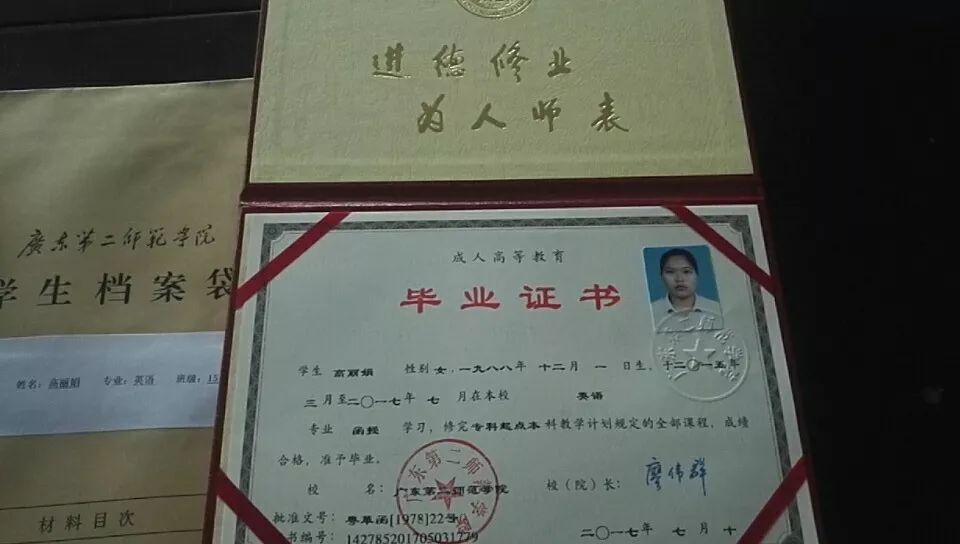 进德修业
为人师表
廣东第二师範学院
学生档案袋
姓名：高丽娟 专业：英语 班级：15
材料目次
成人高等教育
毕业证书
学生 高丽娟 性别 女，一九八八年 十二月 一 日生，于二〇一五年
三 月至二〇一七年 七 月在本校 英语
专业 函授 学习，修完专科起点本科教学计划规定的全部课程，成绩
合格，准予毕业。
校 名：广东第二师范学院 校（院）长：廖伟群
批准文号：粤革函[1978]22号
书编号：142785201705031779 二〇一七年 七 月 十